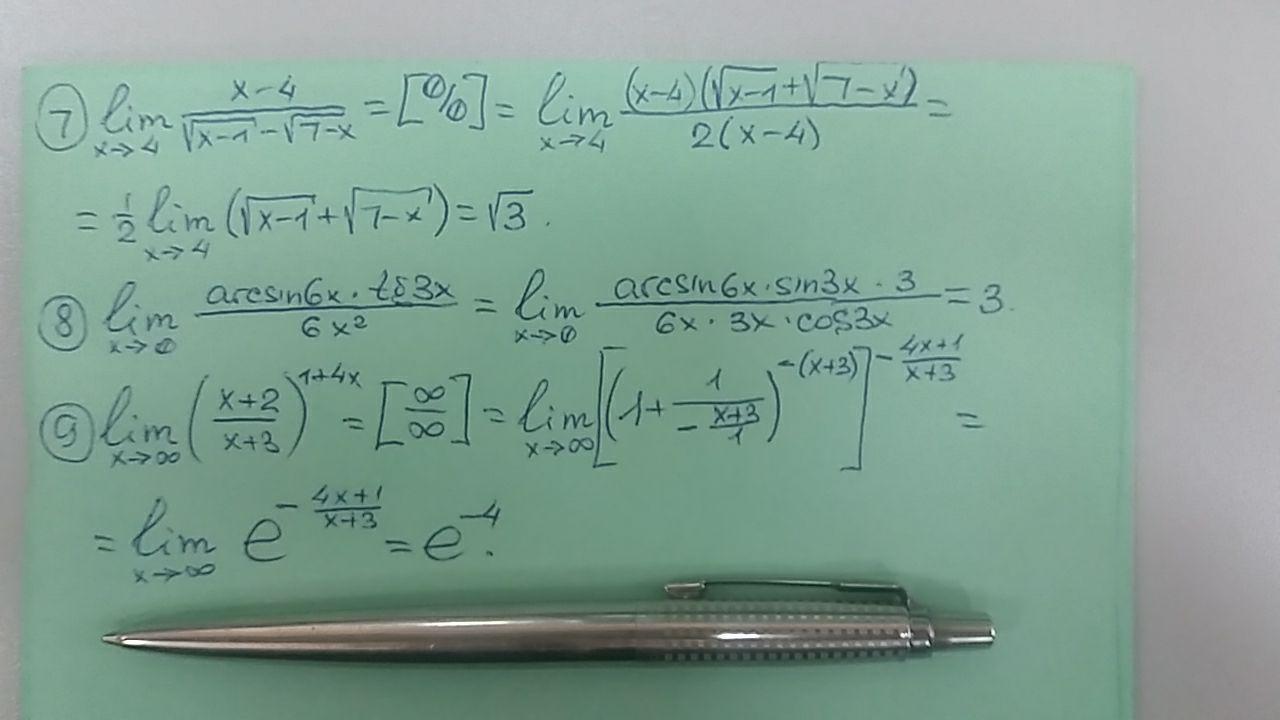 ⑦ lim x→4 (x-4)/(√(x-1) - √(7-x)) = [0/0] = lim x→4 ((x-4)(√(x-1) + √(7-x)))/(2(x-4)) =
= 1/2 lim x→4 (√(x-1) + √(7-x)) = √3.
⑧ lim x→0 (arcsin6x · tg3x)/(6x²) = lim x→0 (arcsin6x · sin3x · 3)/(6x · 3x · cos3x) = 3.
⑨ lim x→∞ ((x+2)/(x+3))^(1+4x) = [∞/∞] = lim x→∞ [(1 + 1/(-(x+3)/1))^(-(x+3))]^(-(4x+1)/(x+3)) =
= lim x→∞ e^(-(4x+1)/(x+3)) = e^(-4).